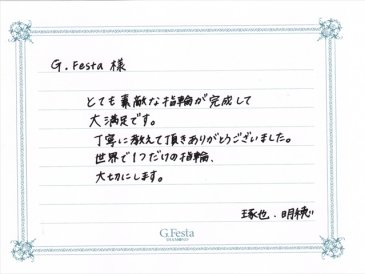 G.Festa 様
とても素敵な指輪が完成して
大満足です。
丁寧に教えて頂きありがとうございました。
世界で1つだけの指輪、
大切にします。
琢也・明穂
G.Festa
DIAMOND